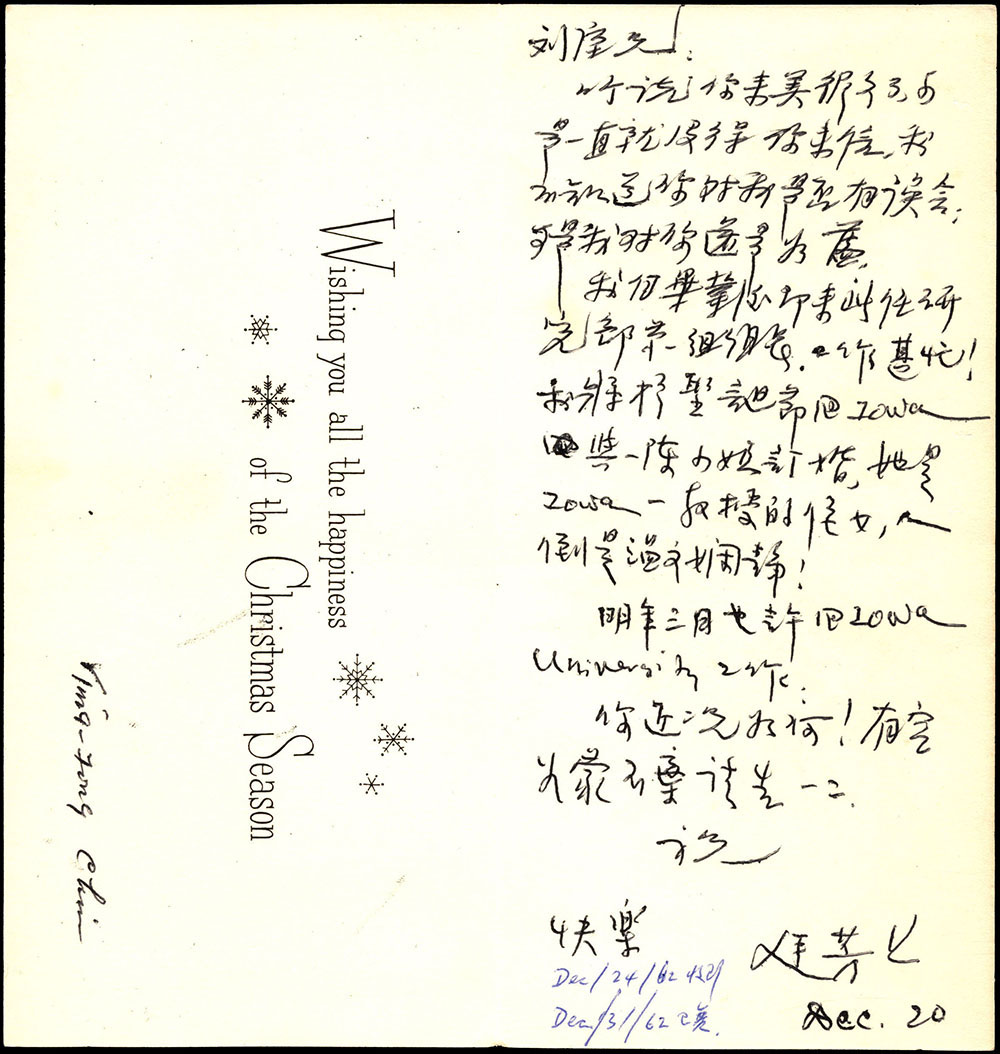 Wishing you all the happiness
of the Christmas Season
Ying-Fong Chin
刘 兄:
听说你来美很久了,可
是一直就没得你来信,我
不知道你对我是否有误会;
可是我对你还是如旧。
我们毕业后即来此任研
究部第一组组长,工作甚忙!
我将于圣誕节回Iowa
与一陈小姐訂婚,她是
Iowa一教授的侄女,人
倒是温文娴静!
明年三月也许回Iowa
University工作.
你近况如何!有空
如蒙不棄请告一二.
祝
快樂
Dec. 20
Dec/24/62收到
Dec/31/62已覆.